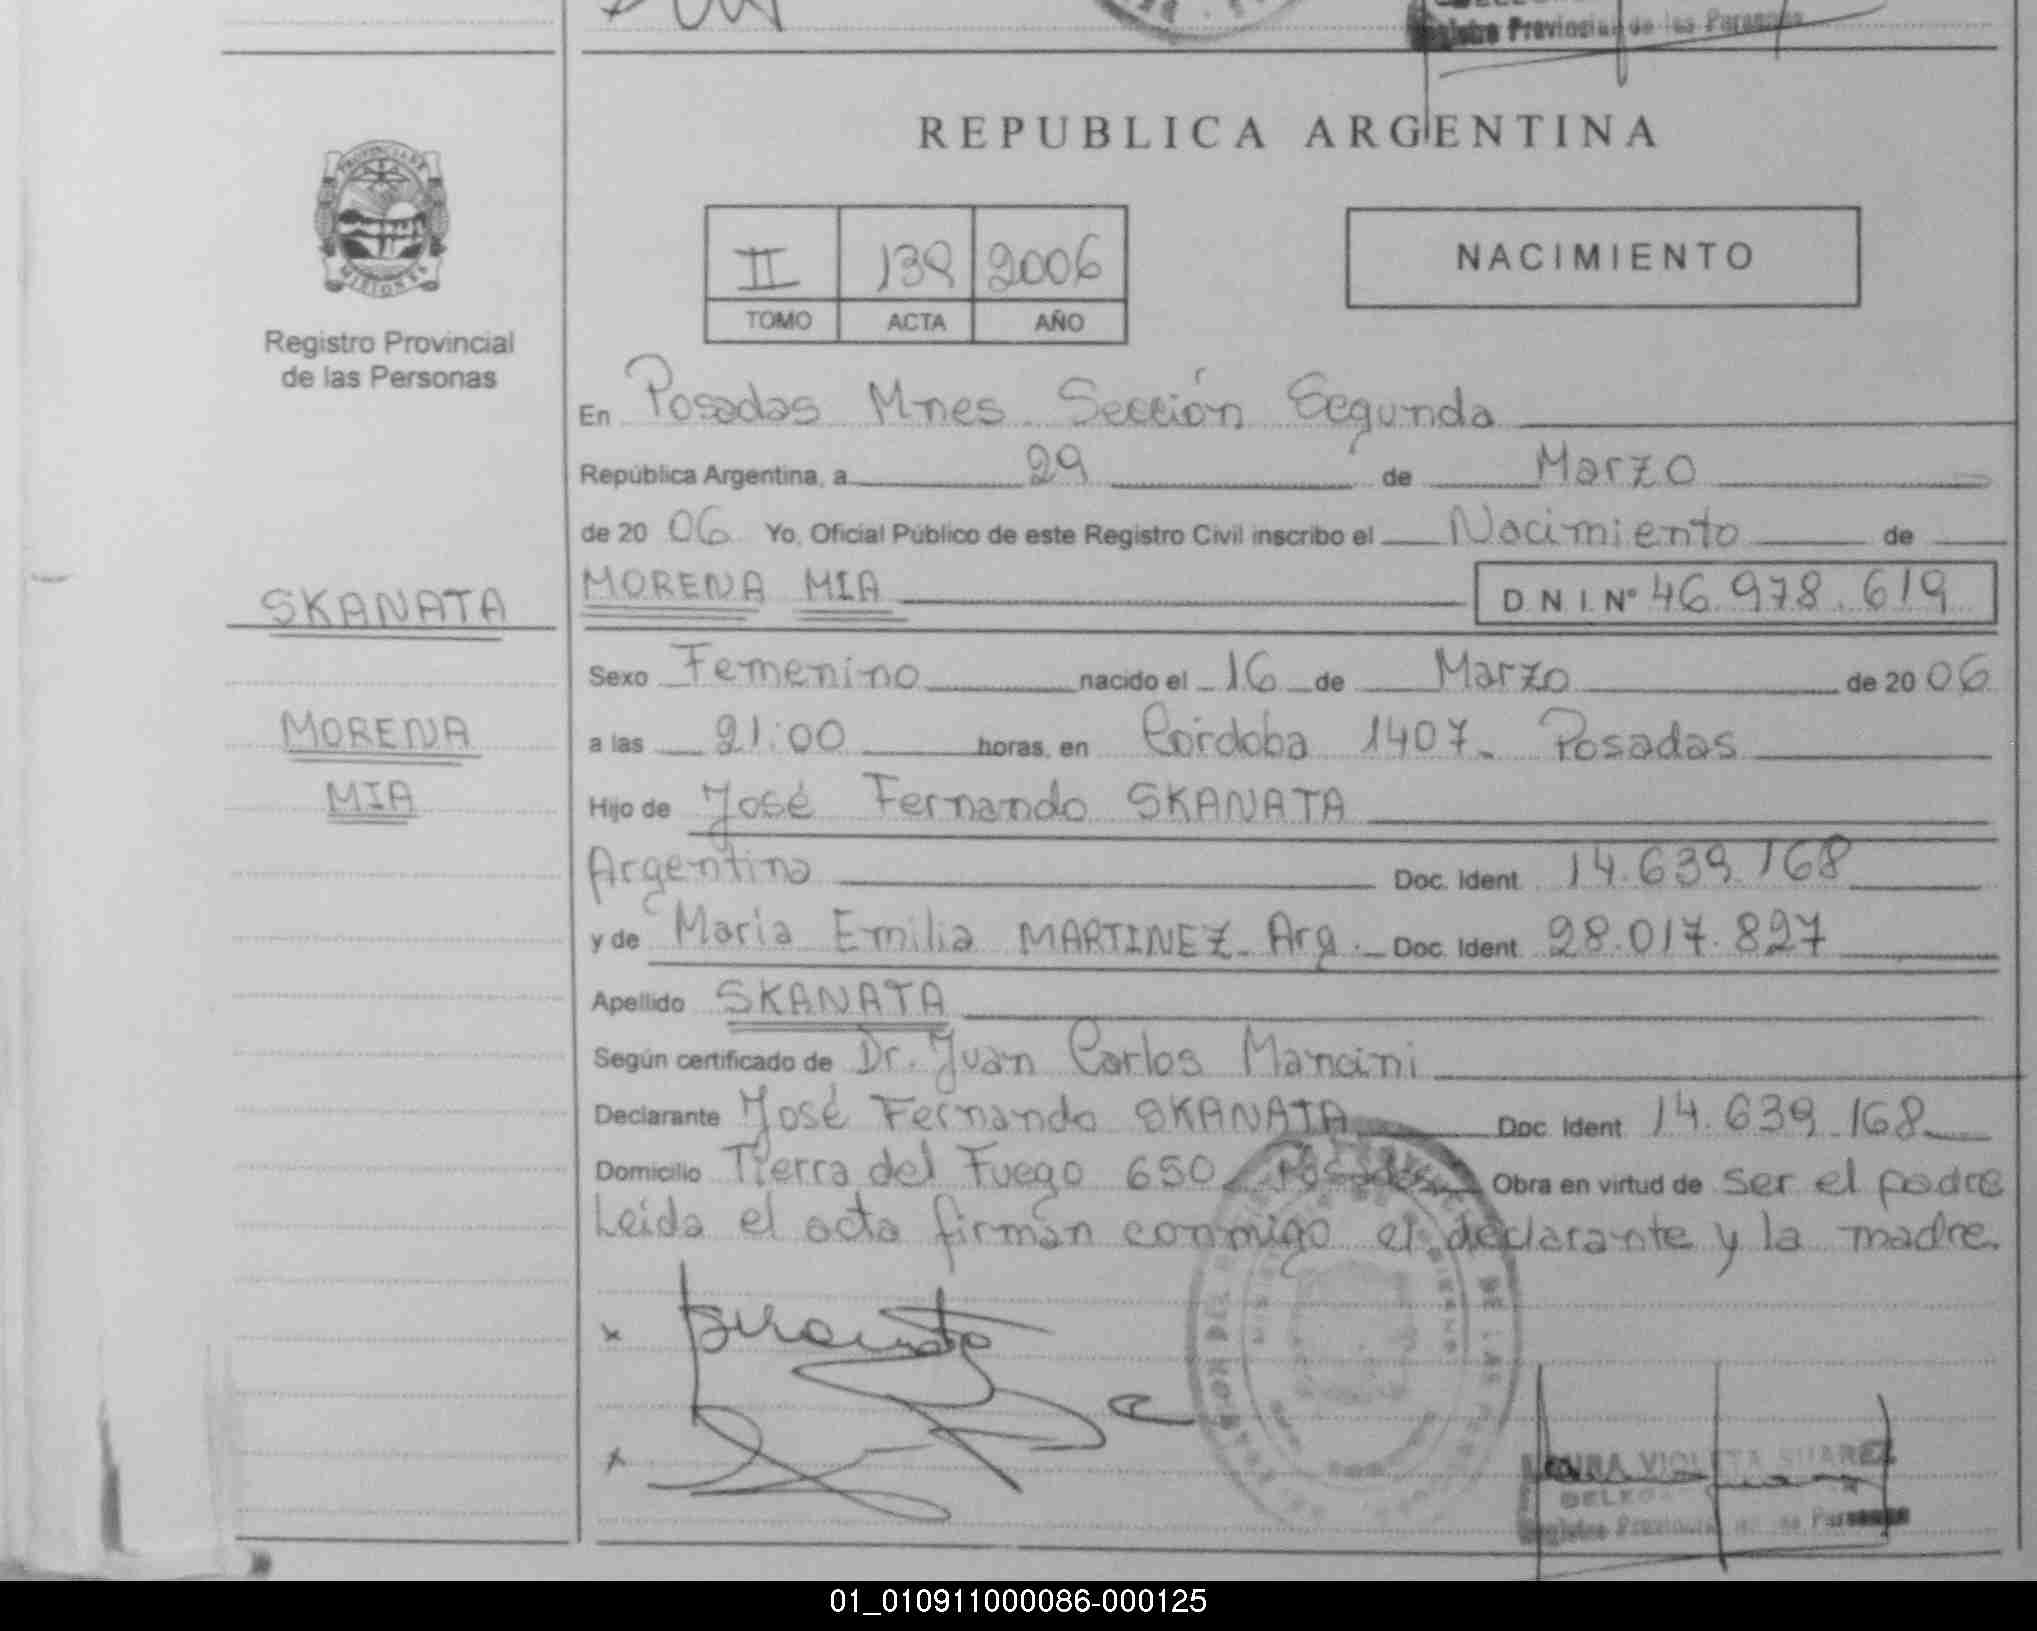 Registro Provincial de las Personas
REPUBLICA ARGENTINA
PROVINCIA DE
MISIONES
Registro Provincial
de las Personas
II 139 2006
TOMO ACTA AÑO
NACIMIENTO
En Posadas Mnes Sección Segunda
República Argentina, a 29 de Marzo
de 2006 Yo, Oficial Público de este Registro Civil inscribo el Nacimiento de
SKANATA
MORENA MIA D N I. Nº 46.978.619
Sexo Femenino nacido el 16 de Marzo de 2006
MORENA
a las 21:00 horas, en Córdoba 1407- Posadas
MIA
Hijo de José Fernando SKANATA
Argentino Doc. Ident 14.639.168
y de María Emilia MARTINEZ- Arg. Doc. Ident. 28.017.827
Apellido SKANATA
Según certificado de Dr. Juan Carlos Mancini
Declarante José Fernando SKANATA Doc. Ident 14.639.168
Domicilio Tierra del Fuego 650 Posadas Obra en virtud de ser el padre
Leida el acta firman conmigo el declarante y la madre.
VIOLETA SUAREZ
Registro Provincial de las Personas
01_010911000086-000125